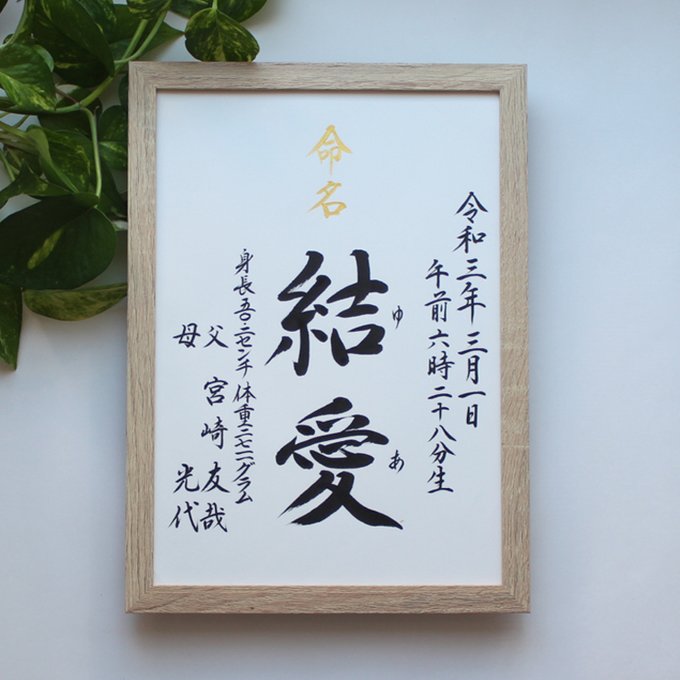 命名
令和三年三月一日
午前六時二十八分生
結愛
ゆ
あ
身長五〇・二センチ 体重 グラム
父 宮崎友哉
母 光代